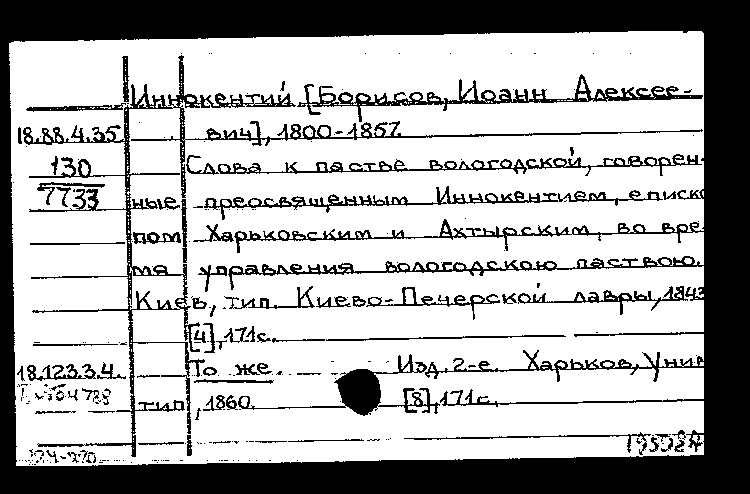 Иннокентий [Борисов, Иоанн Алексее-
18.88.4.35 вич], 1800-1857.
130 Слова к пастве вологодской, говорен-
7733 ные преосвященным Иннокентием, еписко
пом Харьковским и Ахтырским, во вре-
мя управления вологодскою паствою.
Киев, тип. Киево-Печерской лавры, 1843
[4], 171с.
18.123.3.4. То же. Изд. 2-е. Харьков, Унив
тип, 1860. [8], 171с.